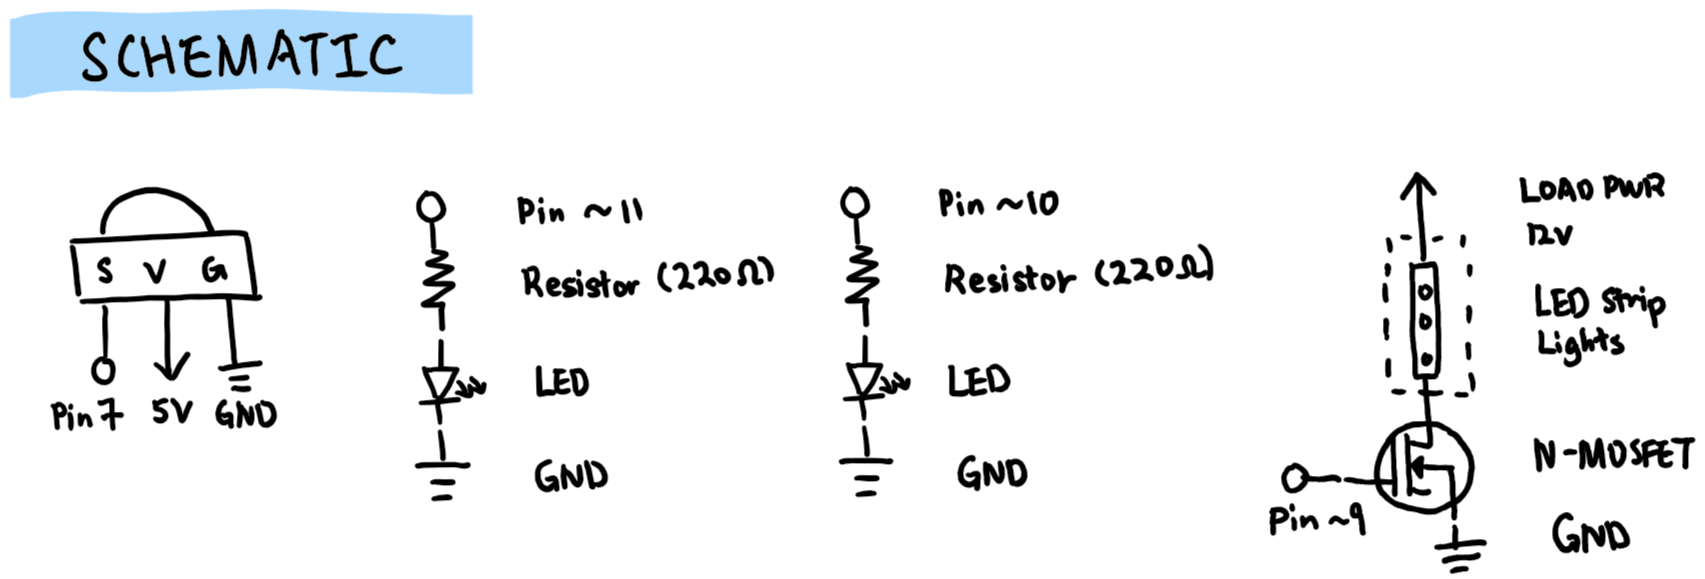 SCHEMATIC
S V G
Pin 7 5V GND
Pin ~11
Resistor (220Ω)
LED
GND
Pin ~10
Resistor (220Ω)
LED
GND
LOAD PWR
12V
LED Strip
Lights
N-MOSFET
Pin ~9
GND